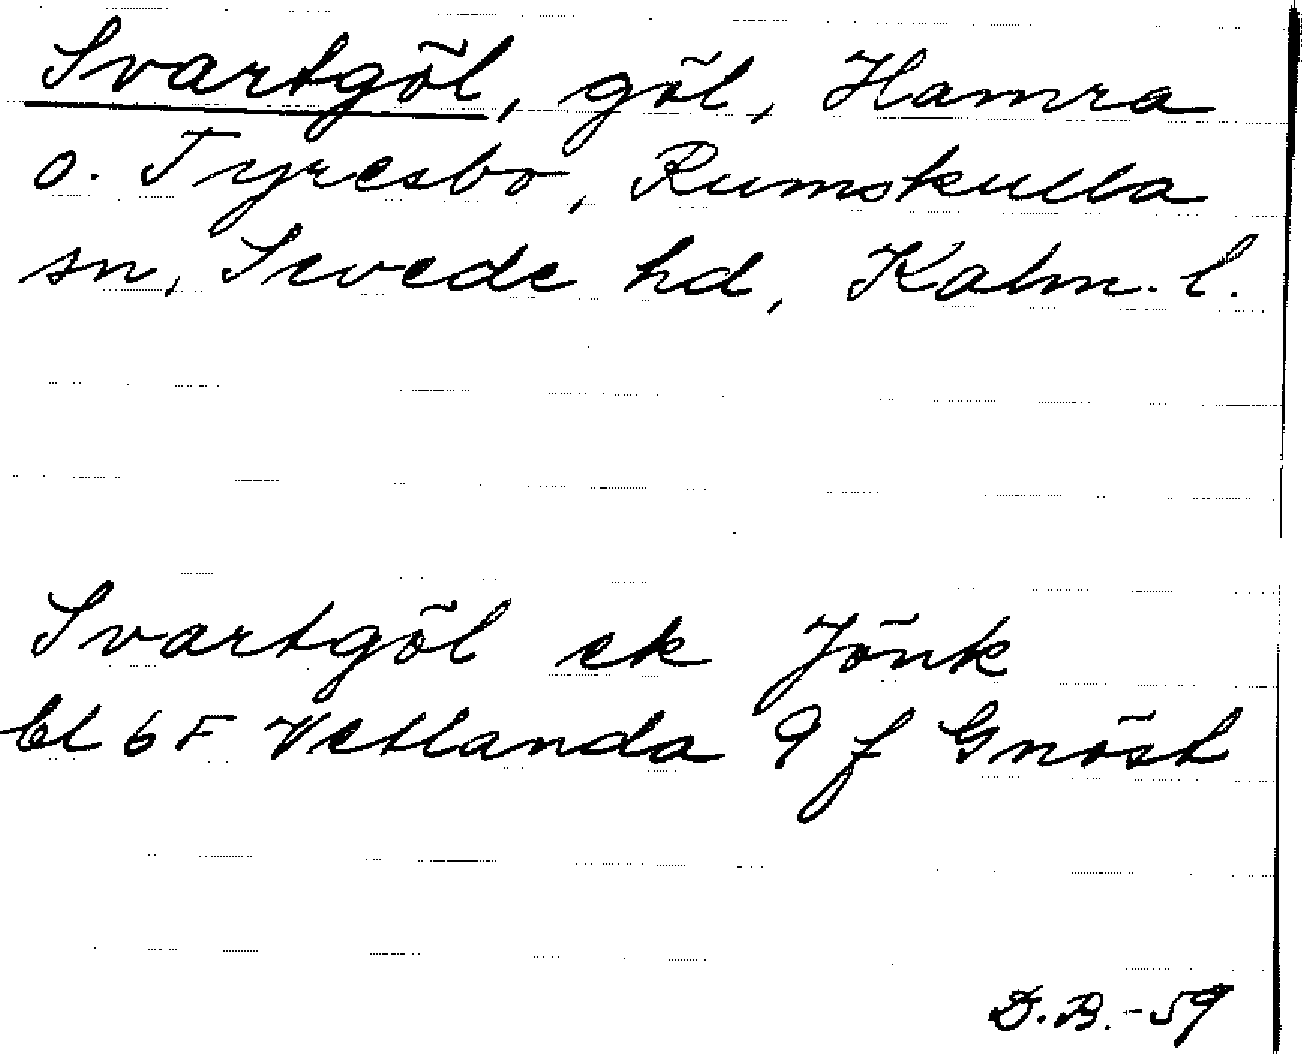 Svartgöl, göl, Hamra
o. Tyresbo, Rumskulla
sn, Sevede hd, Kalm. l.
Svartgöl ek Jönk
bl 6 F Vetlanda 9 f Gnösh
D.B.-59